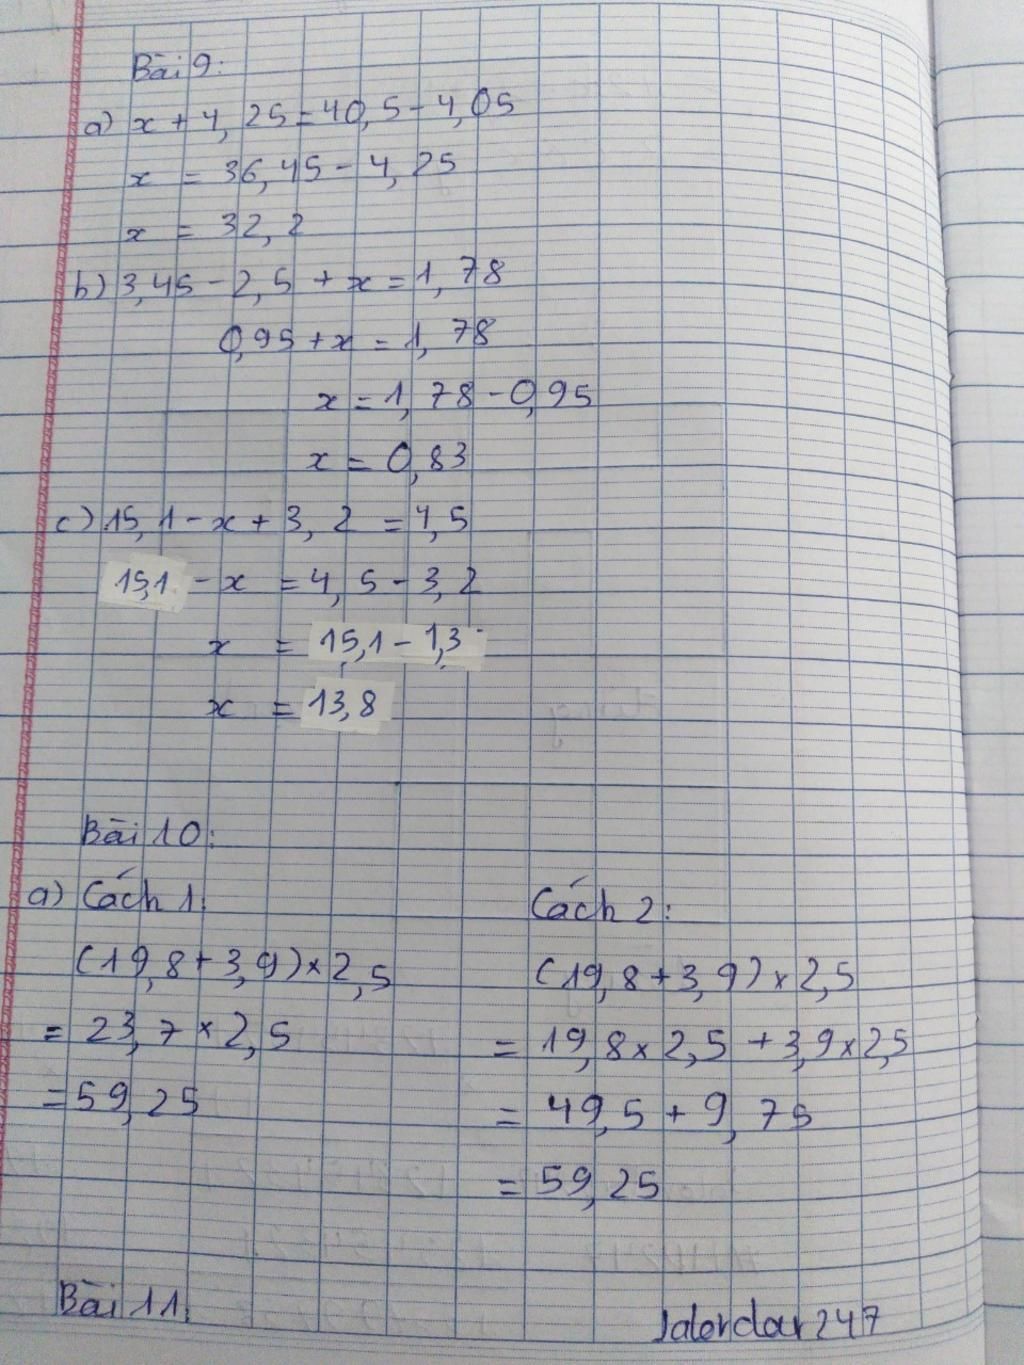 Bài 9:
a) x + 4,25 = 40,5 - 4,05
x = 36,45 - 4,25
x = 32,2
b) 3,45 - 2,5 + x = 1,78
0,95 + x = 1,78
x = 1,78 - 0,95
x = 0,83
c) 15,1 - x + 3,2 = 4,5
15,1 - x = 4,5 - 3,2
x = 15,1 - 1,3
x = 13,8
Bài 10:
a) Cách 1:
(19,8 + 3,9) × 2,5
= 23,7 × 2,5
= 59,25
Cách 2:
(19,8 + 3,9) × 2,5
= 19,8 × 2,5 + 3,9 × 2,5
= 49,5 + 9,75
= 59,25
Bài 11: